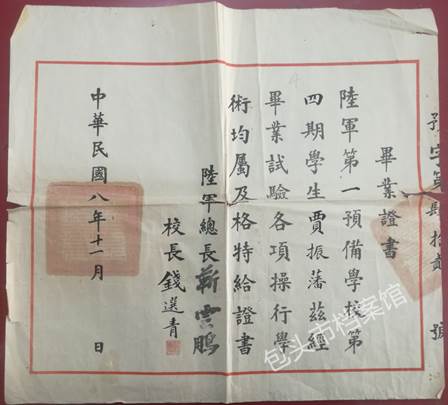 預字第肆拾貳號
畢業證書
陸軍第一預備學校第
四期學生賈振藩茲經
畢業試驗各項操行學
術均屬及格特給證書
陸軍總長靳雲鵬
校長錢選青
中華民國八年十一月　日
包头市档案馆